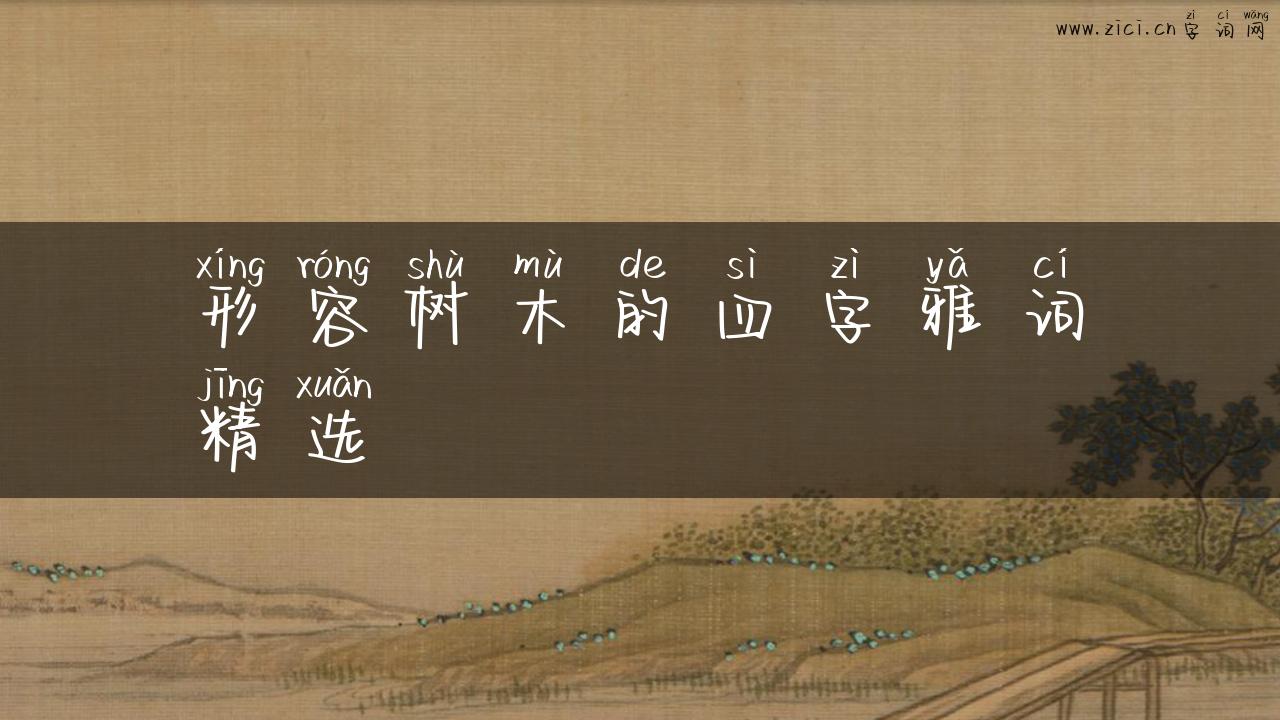 zì cí wǎng
www.zici.cn 字词网
xíng róng shù mù de sì zì yǎ cí
形容树木的四字雅词
jīng xuǎn
精选